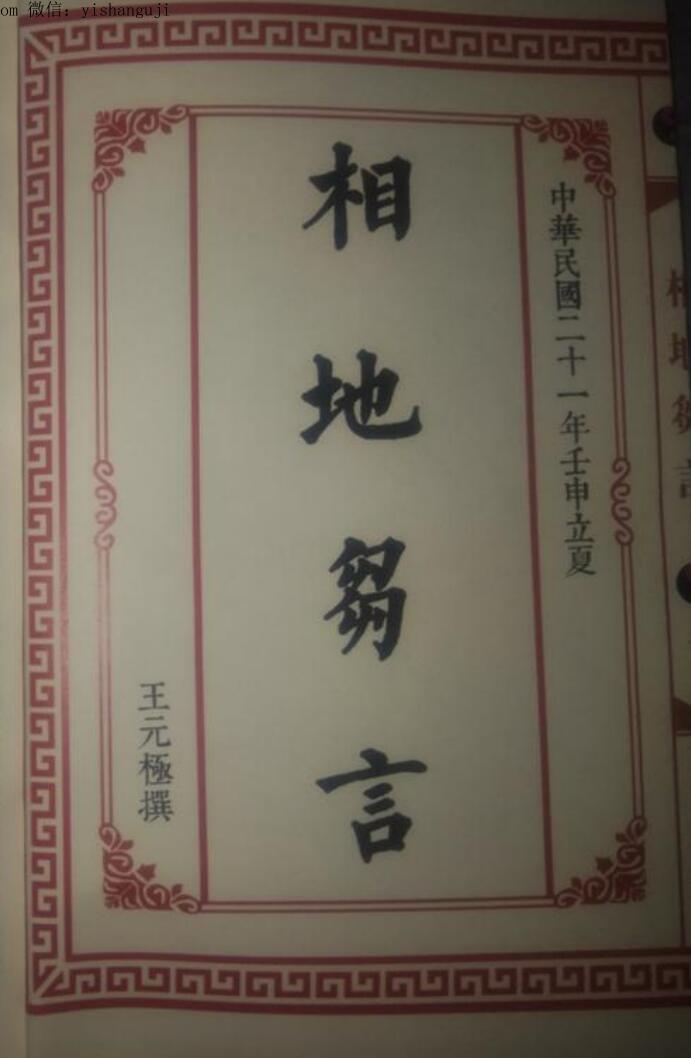 om 微信：yishanguji
中華民國二十一年壬申立夏
相地芻言
王元極撰